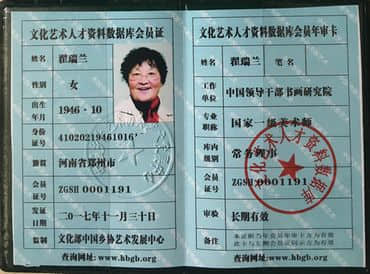 文化艺术人才资料数据库会员证
姓名 翟瑞兰
性别 女
出生年月 1946·10
身份证号 41020219461016
籍贯 河南省郑州市
会员证号 ZGSH 0001191
发证日期 二〇一七年十一月三十日
监制 文化部中国乡协艺术发展中心
查询网址:www.hbgb.org
文化艺术人才资料数据库会员年审卡
姓名 翟瑞兰 笔名
工作单位 中国领导干部书画研究院
专业职称 国家一级美术师
库内级别 常务理事
会员证号 ZGSH 0001191
审验 长期有效
备注 本证须当年会员年审卡方为有效
此卡与左侧会员证同示方为有效
查询网址:www.hbgb.org
文化艺术人才资料数据库